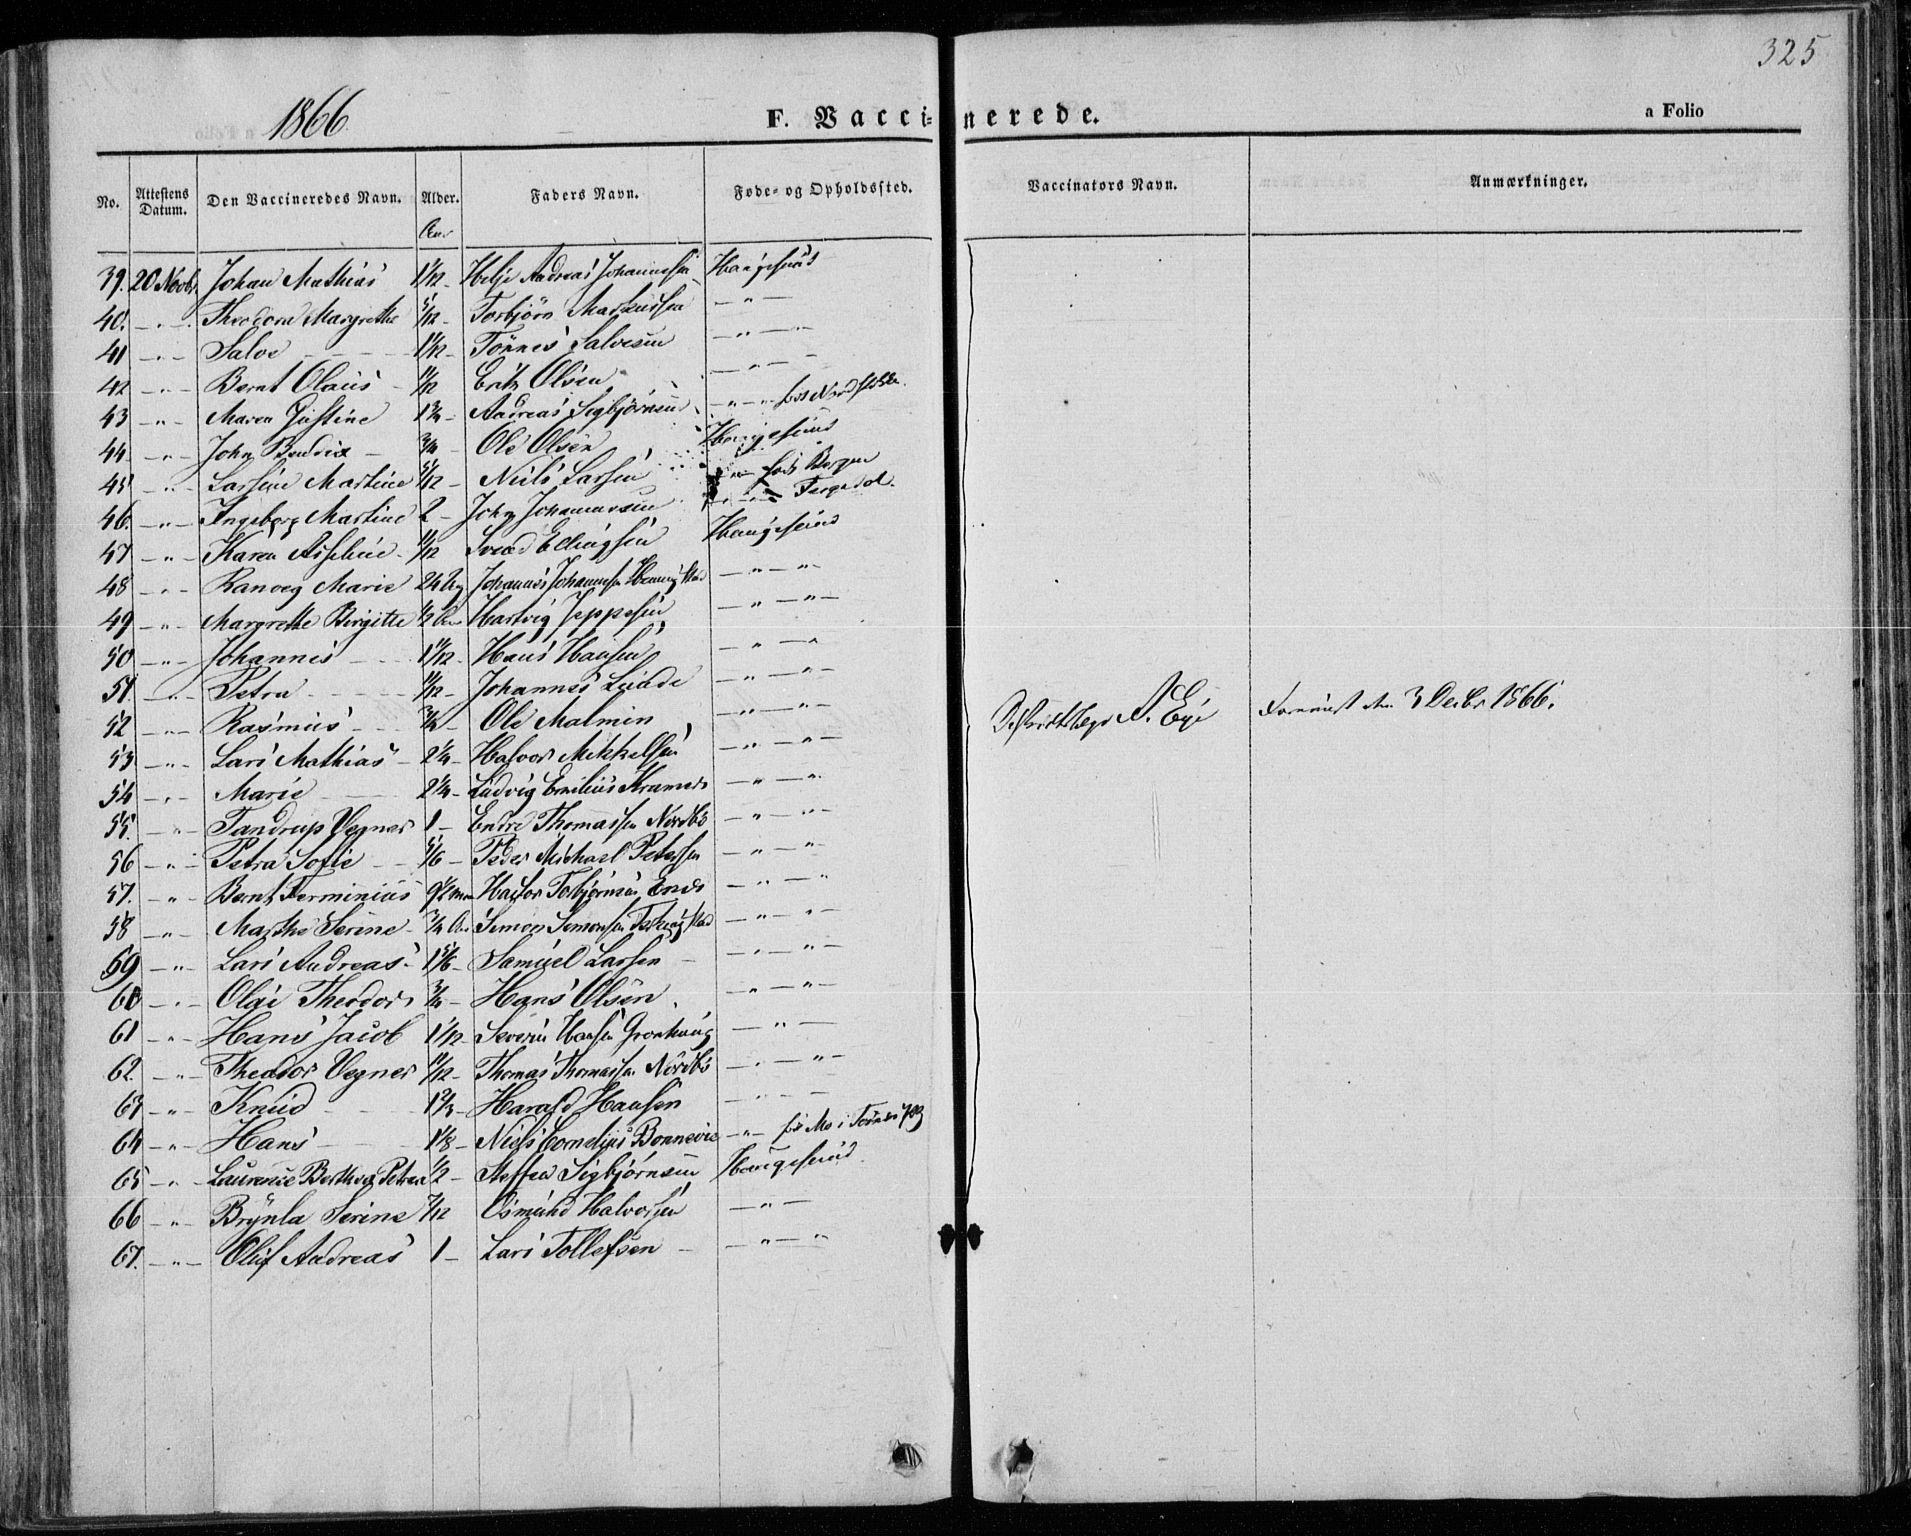 325
1866
F. Vaccinerede.
a Folio
No. Attestens Datum. Den Vaccineredes Navn. Alder. Faders Navn. Føde- og Opholdssted. Vaccinators Navn. Anmærkninger.
39. 20 Novbr Johan Mathias 1 1/12 - Helje Andreas Johannessen Haugesund
40. - " - Theodora Margrethe 5/12 - Torbjörn Markussen - " -
41 - " - Salve 1 1/12 - Tönnes Salvesen - " -
42 - " - Bernt Olaus 11/12 Erik Olsen - " -
43 - " - Maren Justine 1 3/4 - Andreas Sigbjørnsen - " -
44. - " - John Bendix - 3/4 - Ole Olsen Haugesund
45 - " - Larsine Martine 5/12 - Niels Larsen - " - Bergen
46. - " - Ingeborg Martine 2 - John Johannessen - " -
47 - " - Karen Asseline - 11/12 Svend Ellingsen Haugesund
48 - " - Ranveg Marie 24 Johannes Johannessen - " - " -
49 - " - Margrethe Birgitte 1/2 Hartvig Jeppesen - " - " -
50 - " - Johannes 1 11/12 - Hans Hansen - " - "
51. - " - Petra 11/12 - Johannes Lunde - " - " -
52 - " - Rasmus 3/4 - Ole Malmin - " - " -
A. Eye
3 Decbr 1866.
53 - " - Lars Mathias - 2 1/4 - Halvor Mikkelsen - " - " -
54 - " - Marie 2 1/4 - Ludvig Emilius Kramer - " - "
55. - " - Tandrup Vegner 1 - Endre Thomassen Nordbö - " - " -
56 - " - Petra Sofie 5/6 - Peder Michael Petersen - " - " -
57. - " - Bernt Terminius 9 1/2 Torbjørnsen - " - "
58 - " - Marthe Serine - 3/4 Simon Simonsen - " - " -
59 - " - Lars Andreas - 1 5/6 - Samuel Larsen - - " - " -
60 - " - Olai Theodor 3/4 - Hans Olsen - " - " -
61 - " - Hans Jacob 1 1/12 - Severin Hansen Gronhaug - " -
62. - " - Theodor Vegner 11/12 - Thomas Thomassen Nordbö - " - " -
63 - " - Knud 1 2/3 - Harald Hansen - " - " -
64 - " - Hans 1 1/8 - Niels Cornelius Bonnevie - " -
65 - " - Laurense Berthea Petrea 1/2 - Steffen Sigbjørnsen Haugesund.
66 - " - Brynla Serine 7/12 Osmund Halvorsen - " -
67. - " - Oluf Andreas 1 - Lars Tollefsen - - " - "